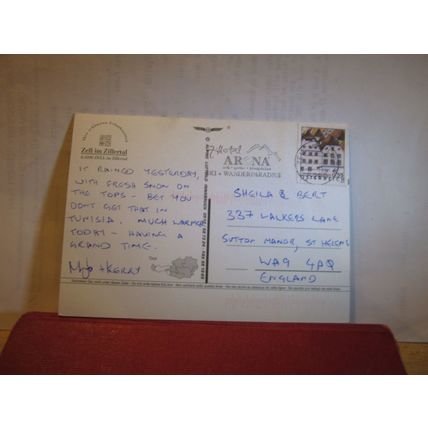 Zell im Zillertal
IT RAINED YESTERDAY,
WITH FRESH SNOW ON
THE TOPS – BET YOU
DON'T GET THAT IN
TUNISIA. MUCH WARMER
TODAY – HAVING A
GRAND TIME.
+ KERRY
Tirol
ARENA
SKI + WANDERPARADIES
SHEILA & BERT
337 WALKERS LANE
SUTTON MANOR, ST HELENS
WA9 4AQ
ENGLAND